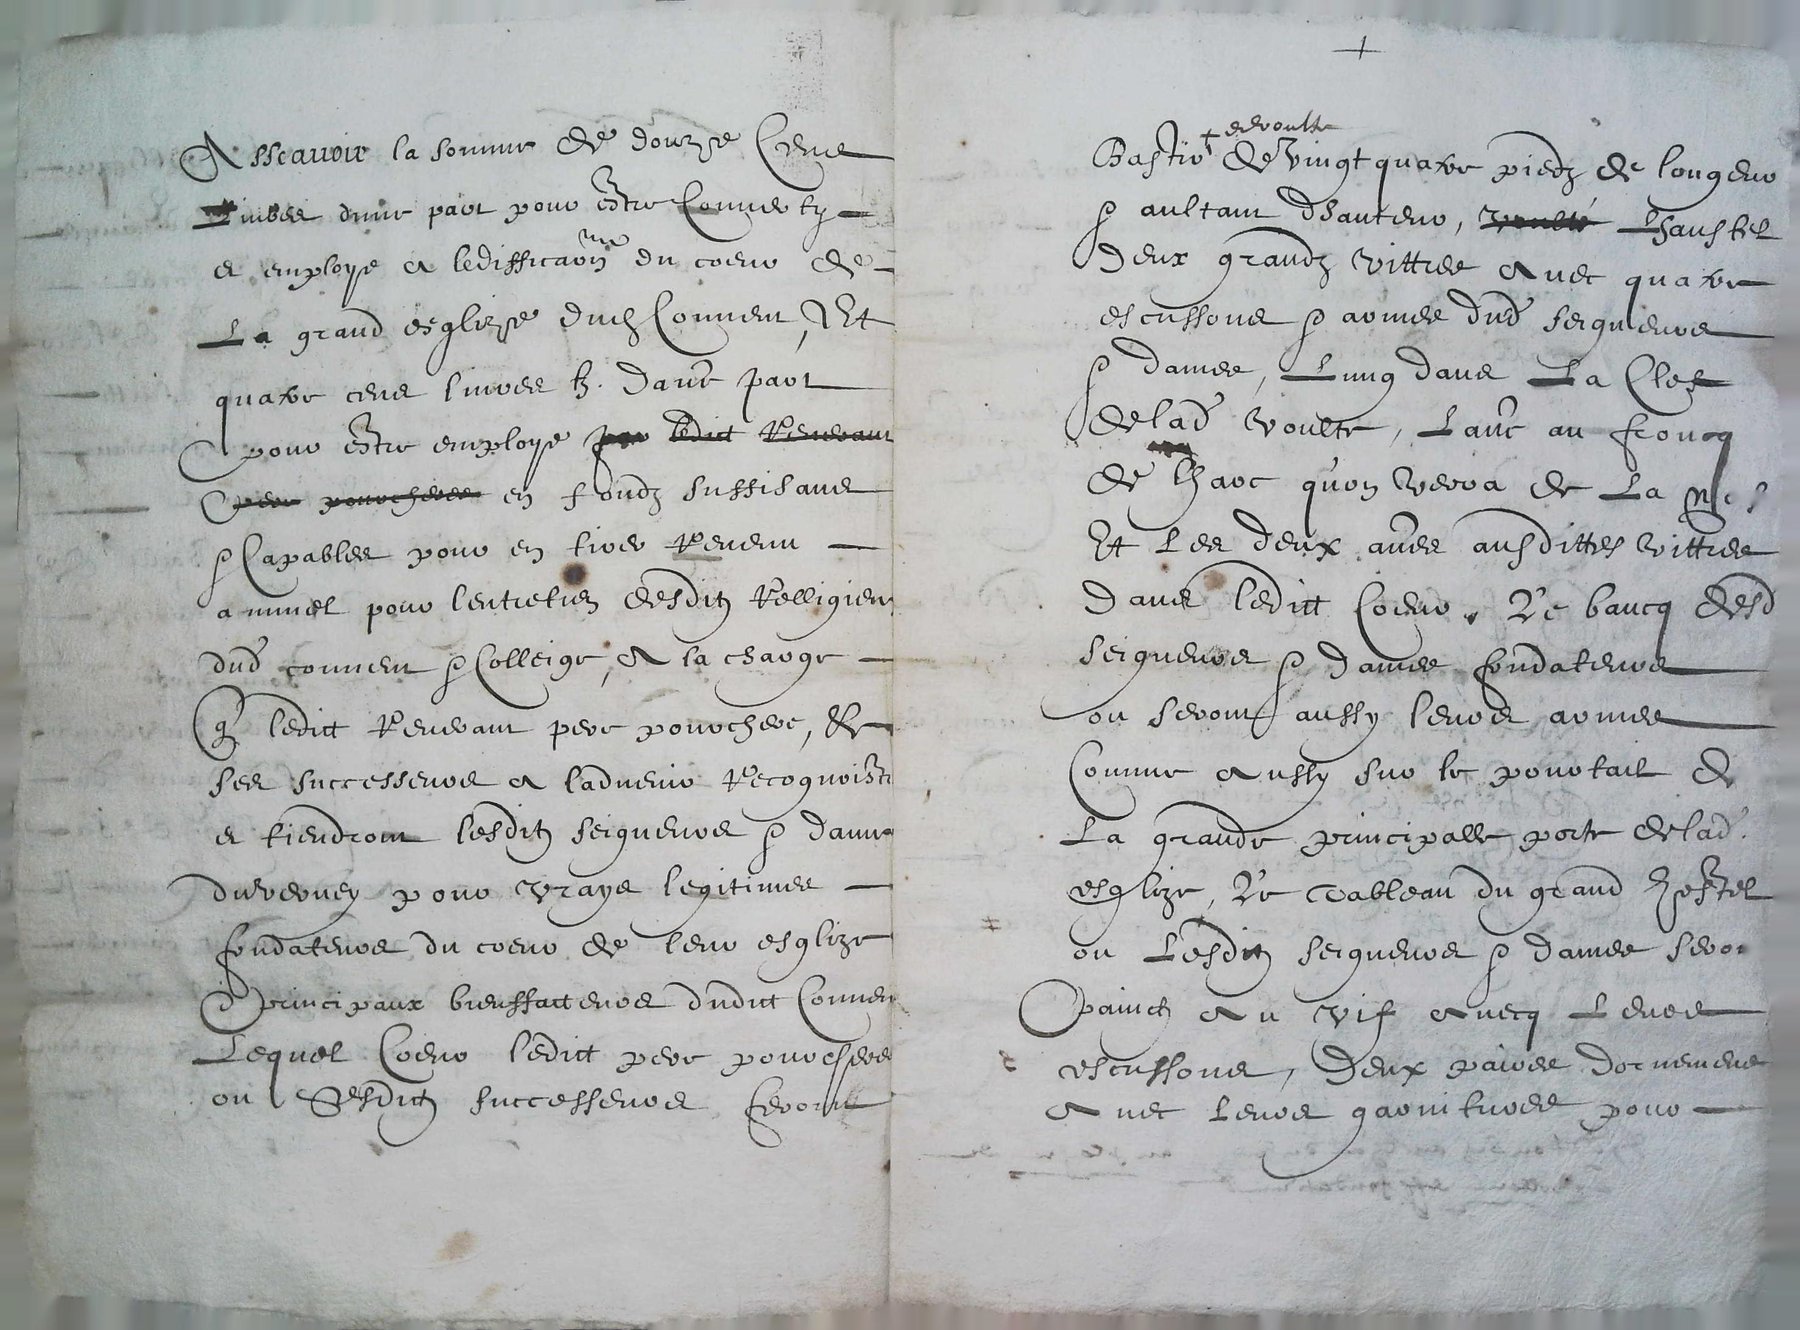 Asscavoir la somme de douze Cens
Livres d'une part pour estre Converty
et employe a lediffica͠on du coeur de
La grand esglize dud Convent, Et
quatre cens livres tz. dautre part
pour estre employe par ledict Reverant
Pere pourchere en fondz suffisans
& Capables pour en tirer Revenu
annuel pour lentretien desditz Relligieux
dud convent & Colleige, A la charge
q ledict Reverant pere pourchere, Et
ses successeurs a ladvenir Recognoistr
et tiendront lesditz seigneurs & dame
du verney pour vrays legitimes
fondateurs du coeur de leur esglize
& principaux bienffacteurs dudict Conven
Lequel Coeur ledict pere pourchere
ou Sesditz successeurs feront
✝
Bastir + de vingt quatre piedz de longeur
+ et voulte
& aultant d'hauteur, voulte L'haustel
Deux grandz vittres avec quatre
escussons & armes dud seigneurs
& dames, Lung dans La Clef
de lad voulte, l'autre au froncq
de l'harc qu'on verra de La nef
Et Les deux autres ausdittes vittres
Dans ledict Coeur. Le bancq desd
seigneurs & dames fondateurs
ou seront aussy leurs armes
Comme Aussy sur le pourtail de
La grande principalle porte de lad.
esglize, Le Tableau du grand hostel
ou Lesditz seigneurs & dames seron
painctz Au Vif avecq Leurs
escussons, Deux paires d'ornemens
avec Leurs garnitures pour